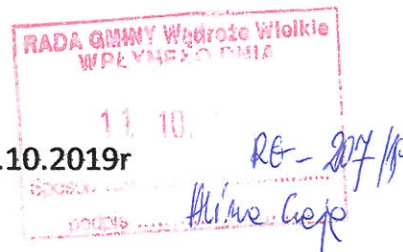 RADA GMINY Wądroże Wielkie
WPŁYNĘŁO DNIA
11. 10.
.10.2019r
RG - 207/19
podpis
Alina